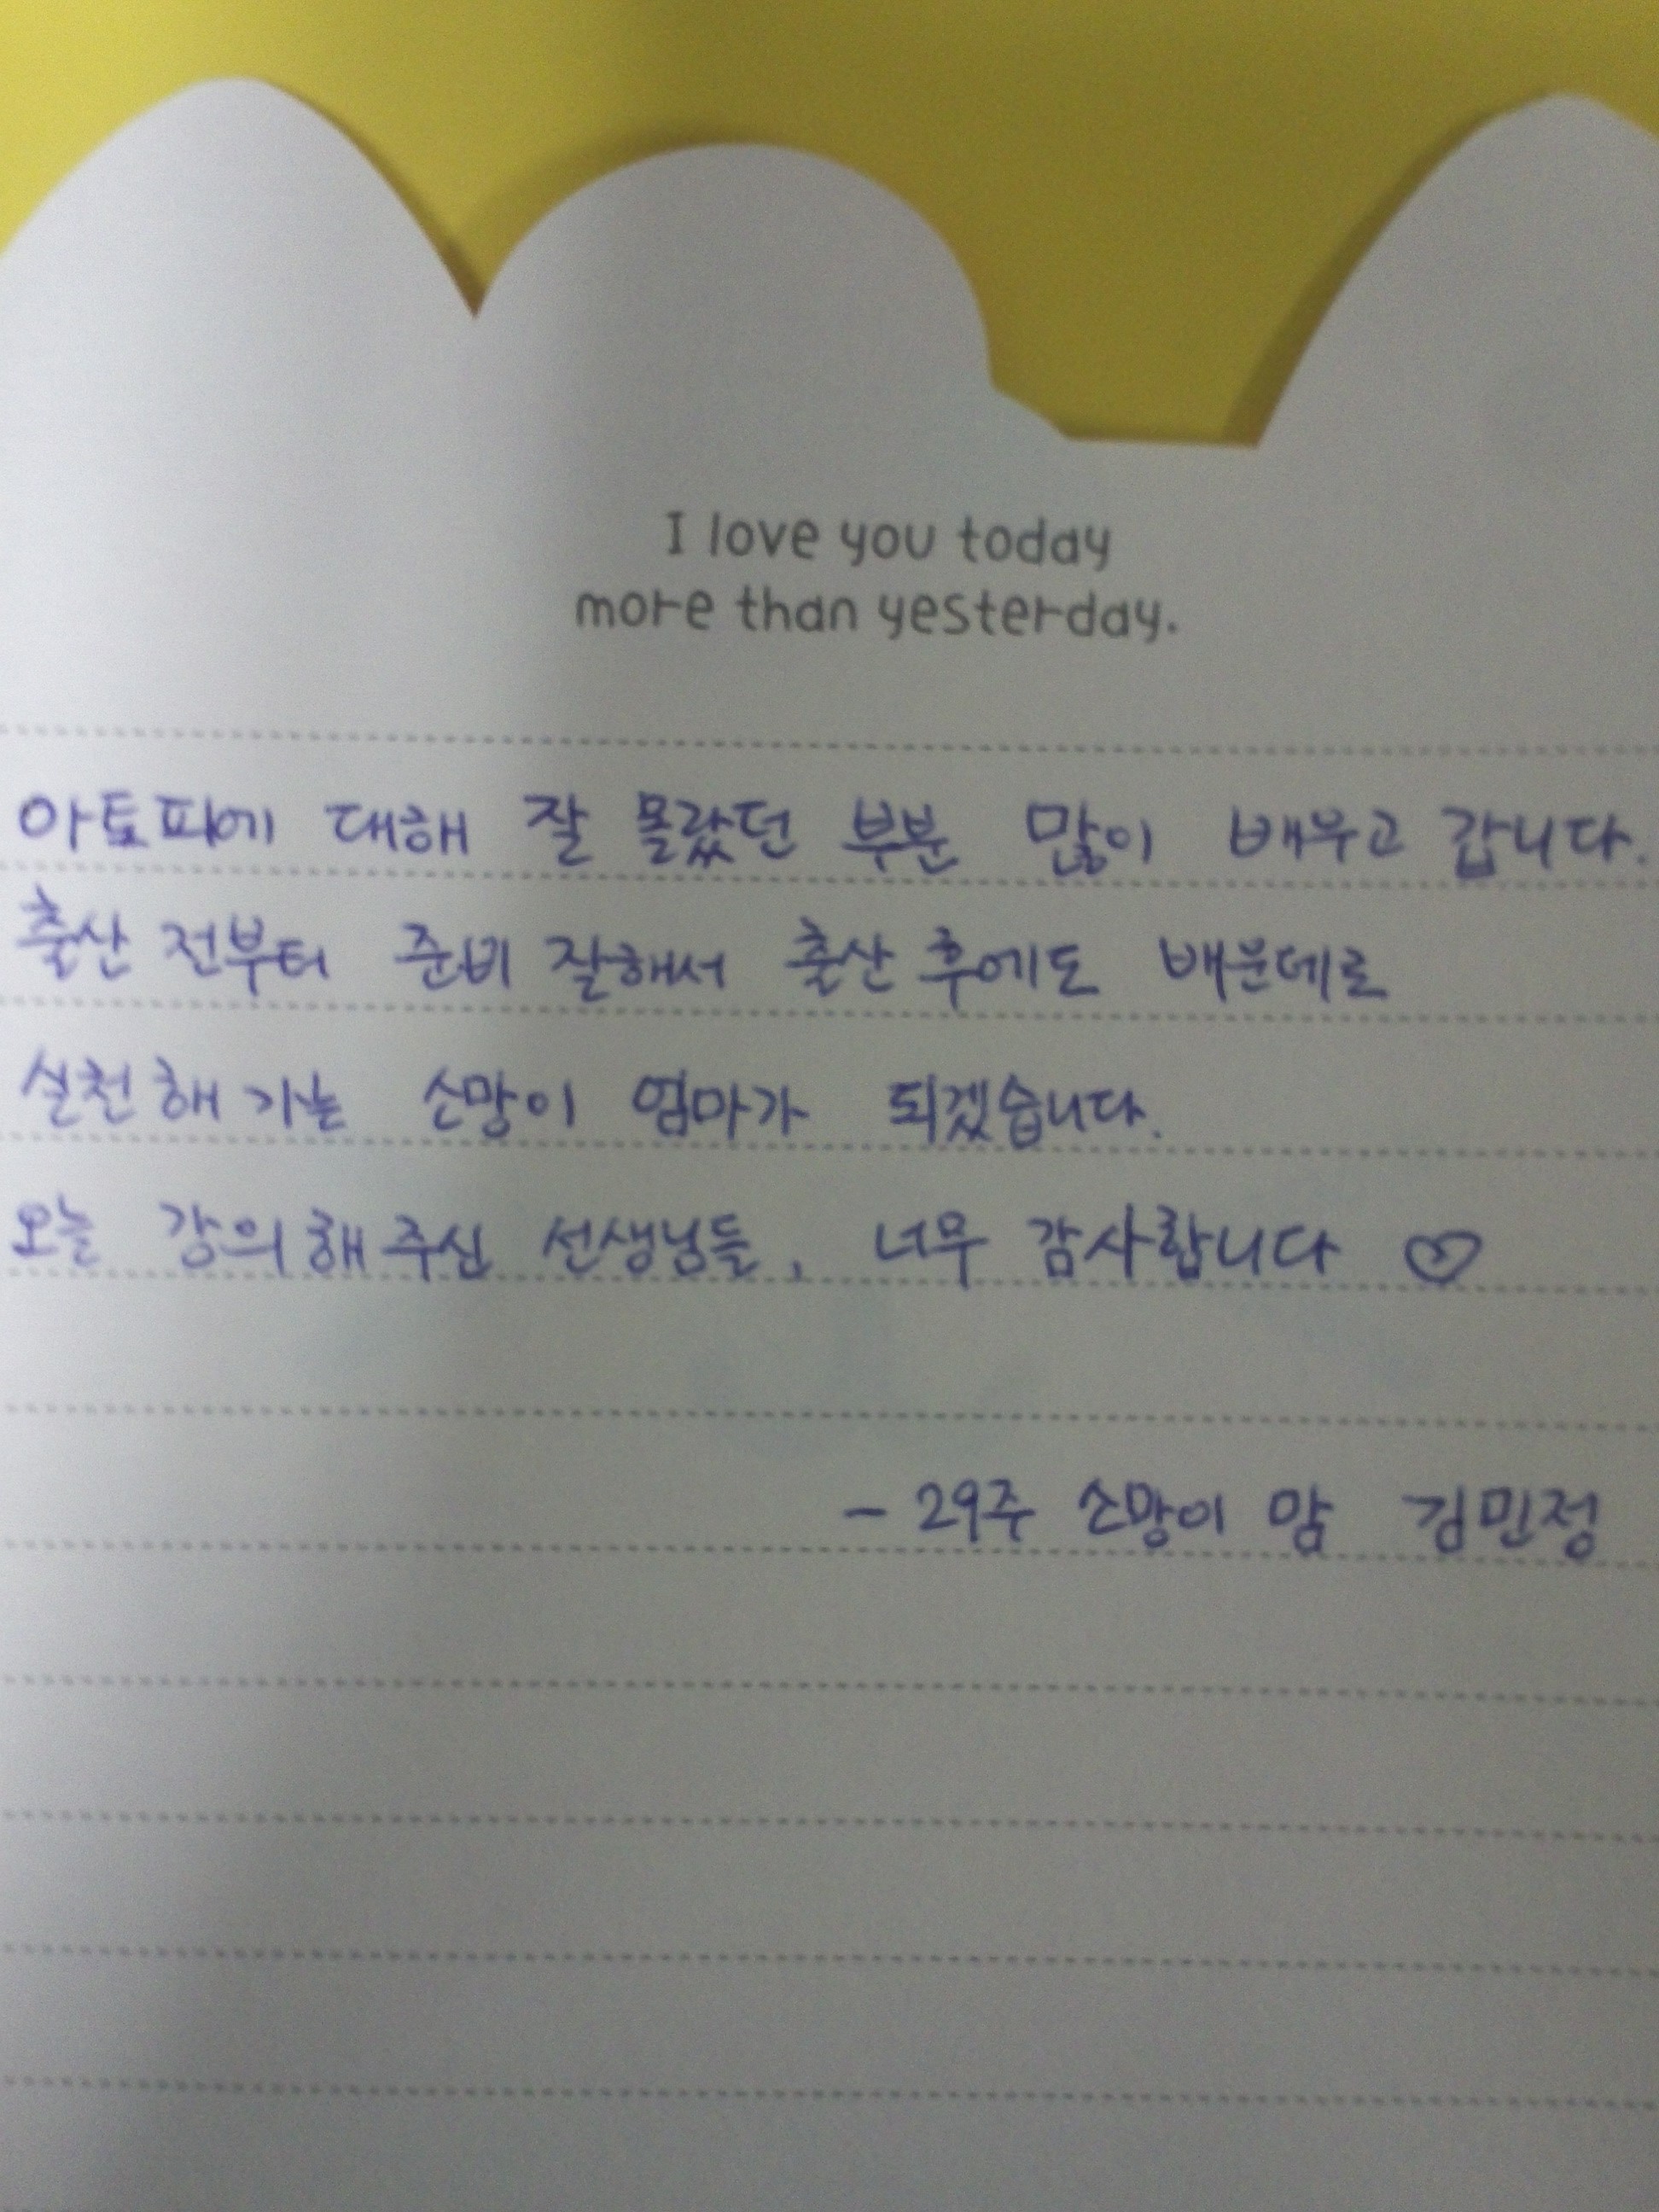 I love you today
more than yesterday.
아토피에 대해 잘 몰랐던 부분 많이 배우고 갑니다.
출산 전부터 준비 잘해서 출산 후에도 배운데로
실천해 가는 소망이 엄마가 되겠습니다.
오늘 강의해 주신 선생님들, 너무 감사합니다 ♡
- 29주 소망이 맘 김민정